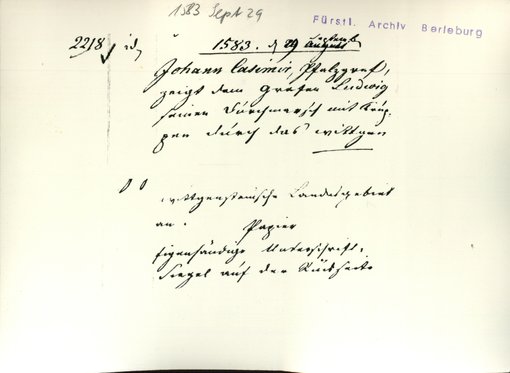 1583 Sept 29
Fürstl. Archiv Berleburg
2218 id,
1583. d 29 September August
Johann Casimir, Pfalzgraf,
zeigt dem Grafen Ludwig
seinen Durchmarsch mit Trup-
pen durch das wittgen
wittgensteinische Landesgebiet
an. Papier
Eigenhändige Unterschrift.
Siegel auf der Rückseite